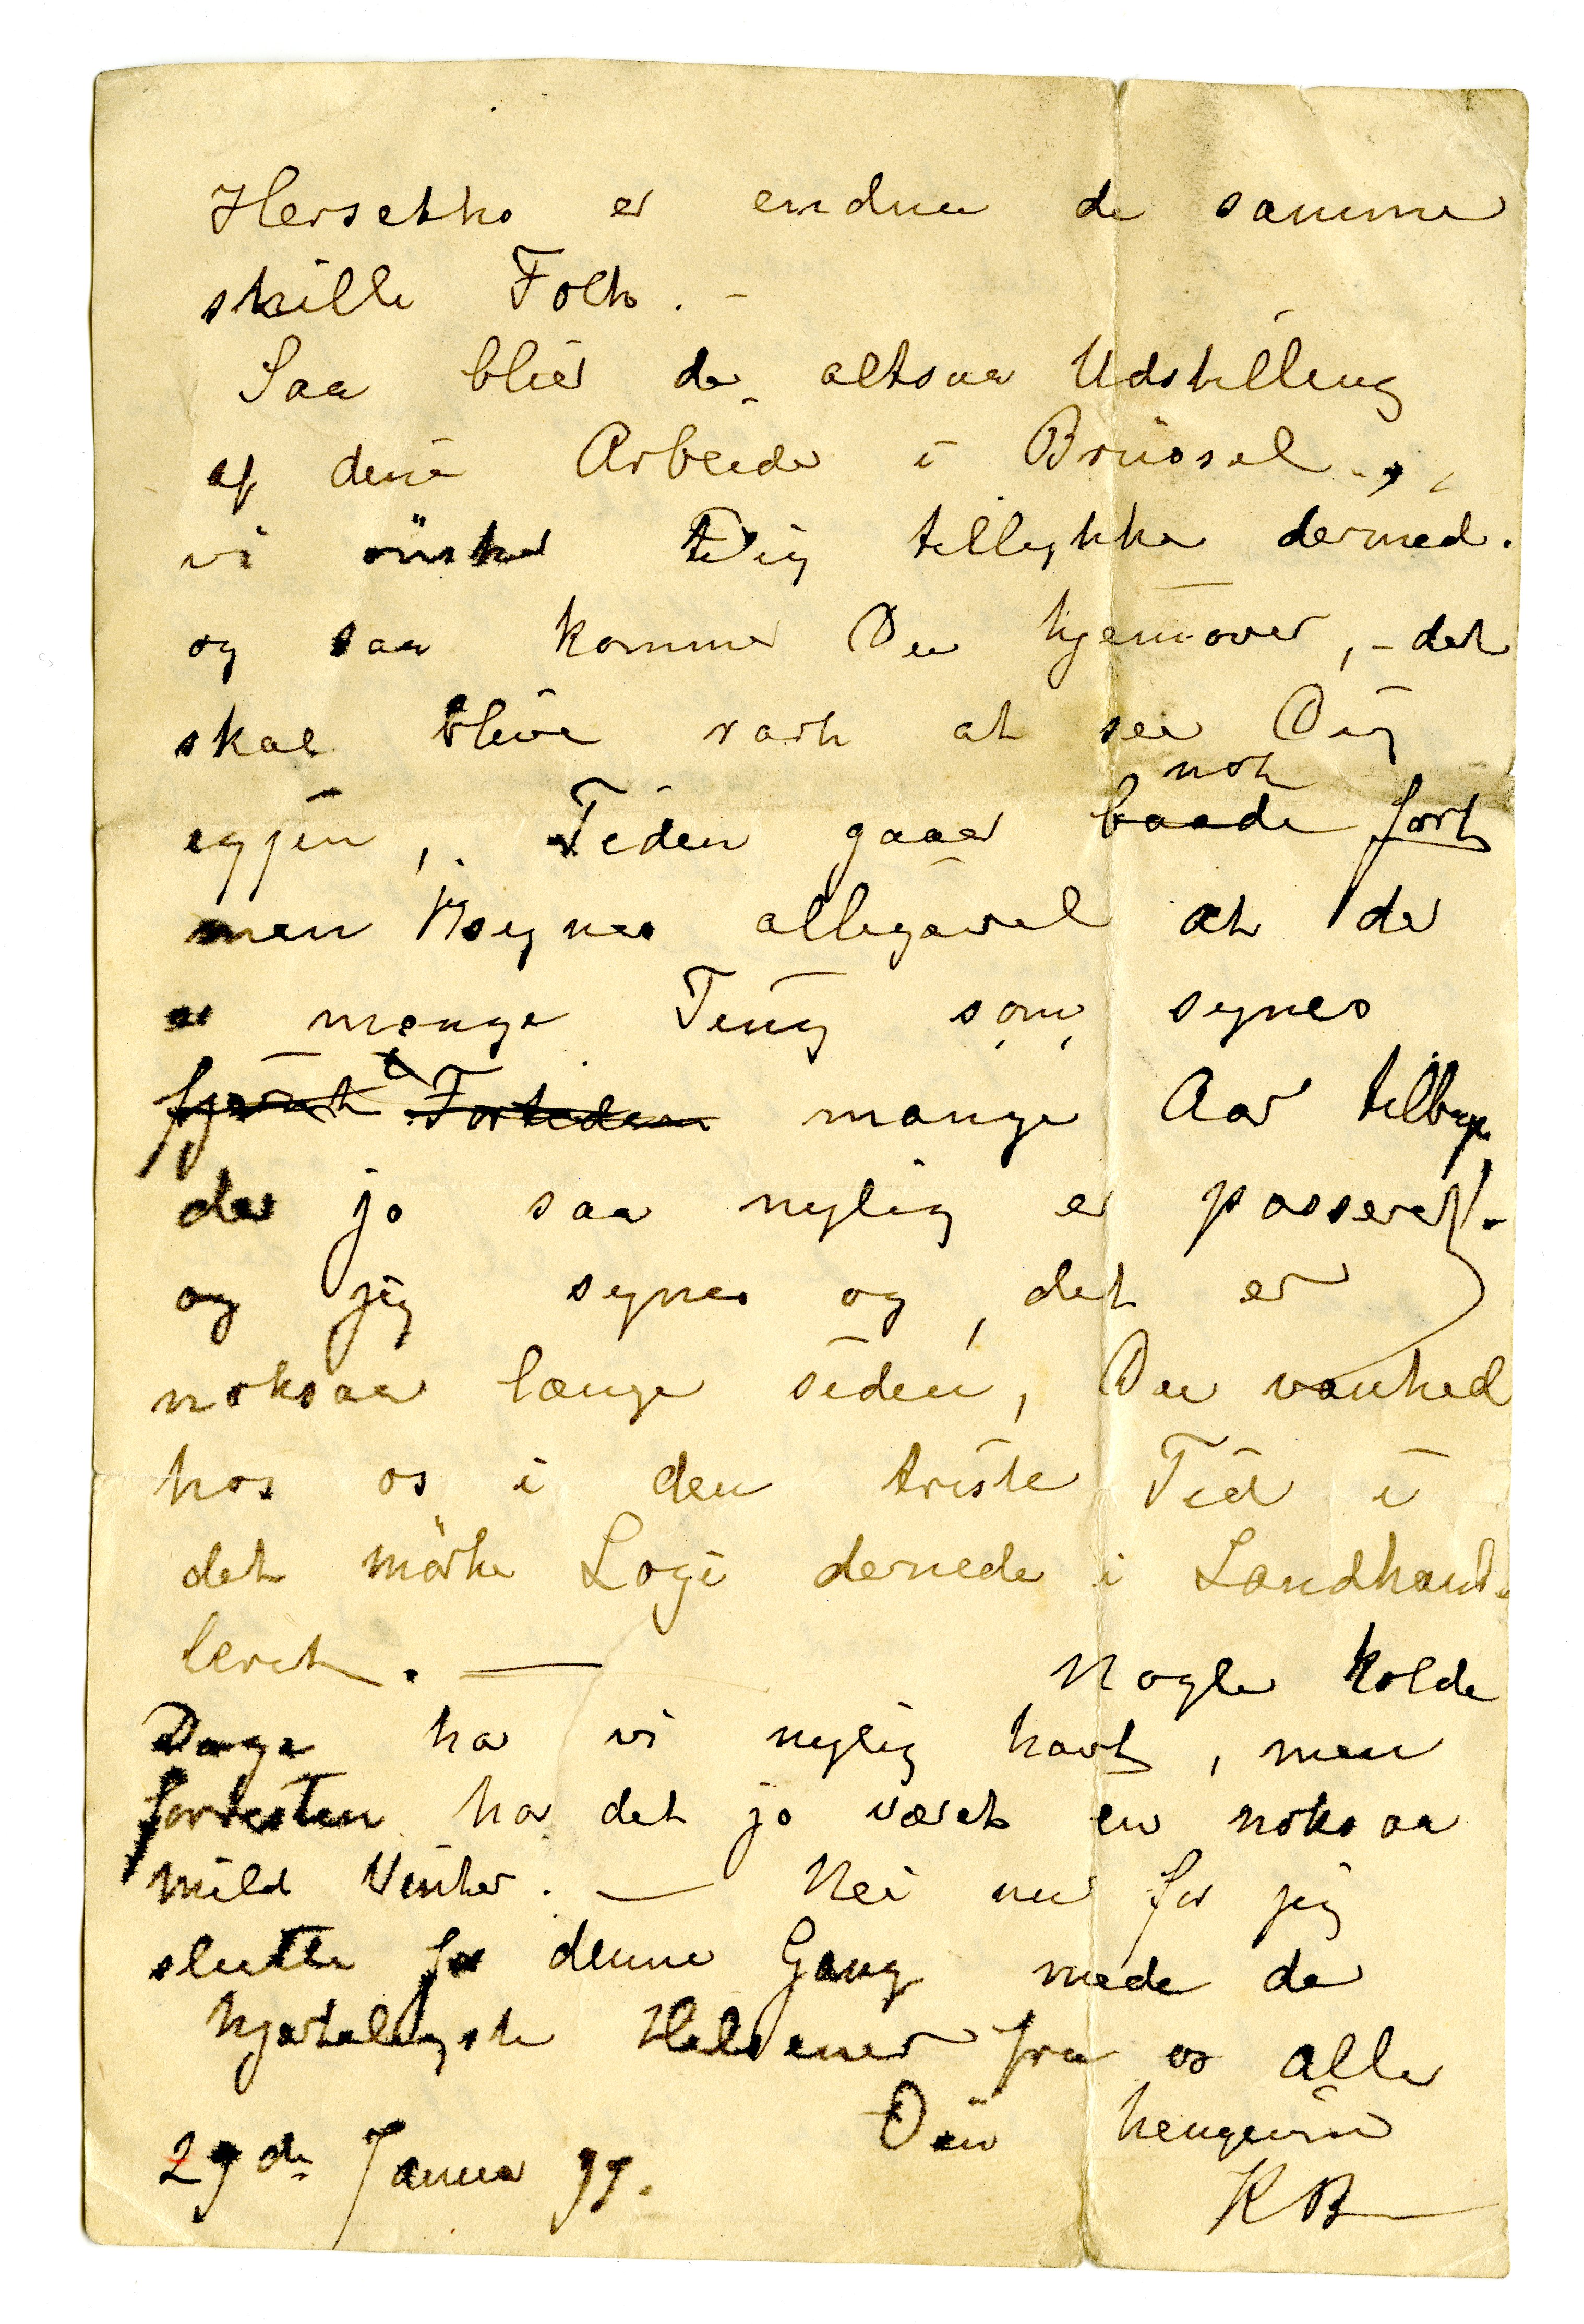 Hersetho er endnu de samme
snille Folk. -
Saa blier der altsaa Udstilling
af dine Arbeider i Brüssel,
vi önsker Dig tillykke dermed.
og saa kommer Du hjemover, - det
skal blive rart at see Dig
igjen, Tiden gaaer nok fort
men synes alligevel at der
er mange Ting som synes
mange Aar tilbage
der jo saa nylig er passeret!
og jeg synes og, det er
noksaa længe siden, Du vanked
hos os i den triste Tid i
det mörke Logi dernede i Landhand-
leriet. —
Nogle kolde
Dage har vi nylig havt, men
forresten har det jo været en noksaa
mild Vinter. — Nei nu for jeg
slutte for denne Gang mede de
hjerteligste Helsener fra os alle
Din hengivne
29de Januar 97.
KB